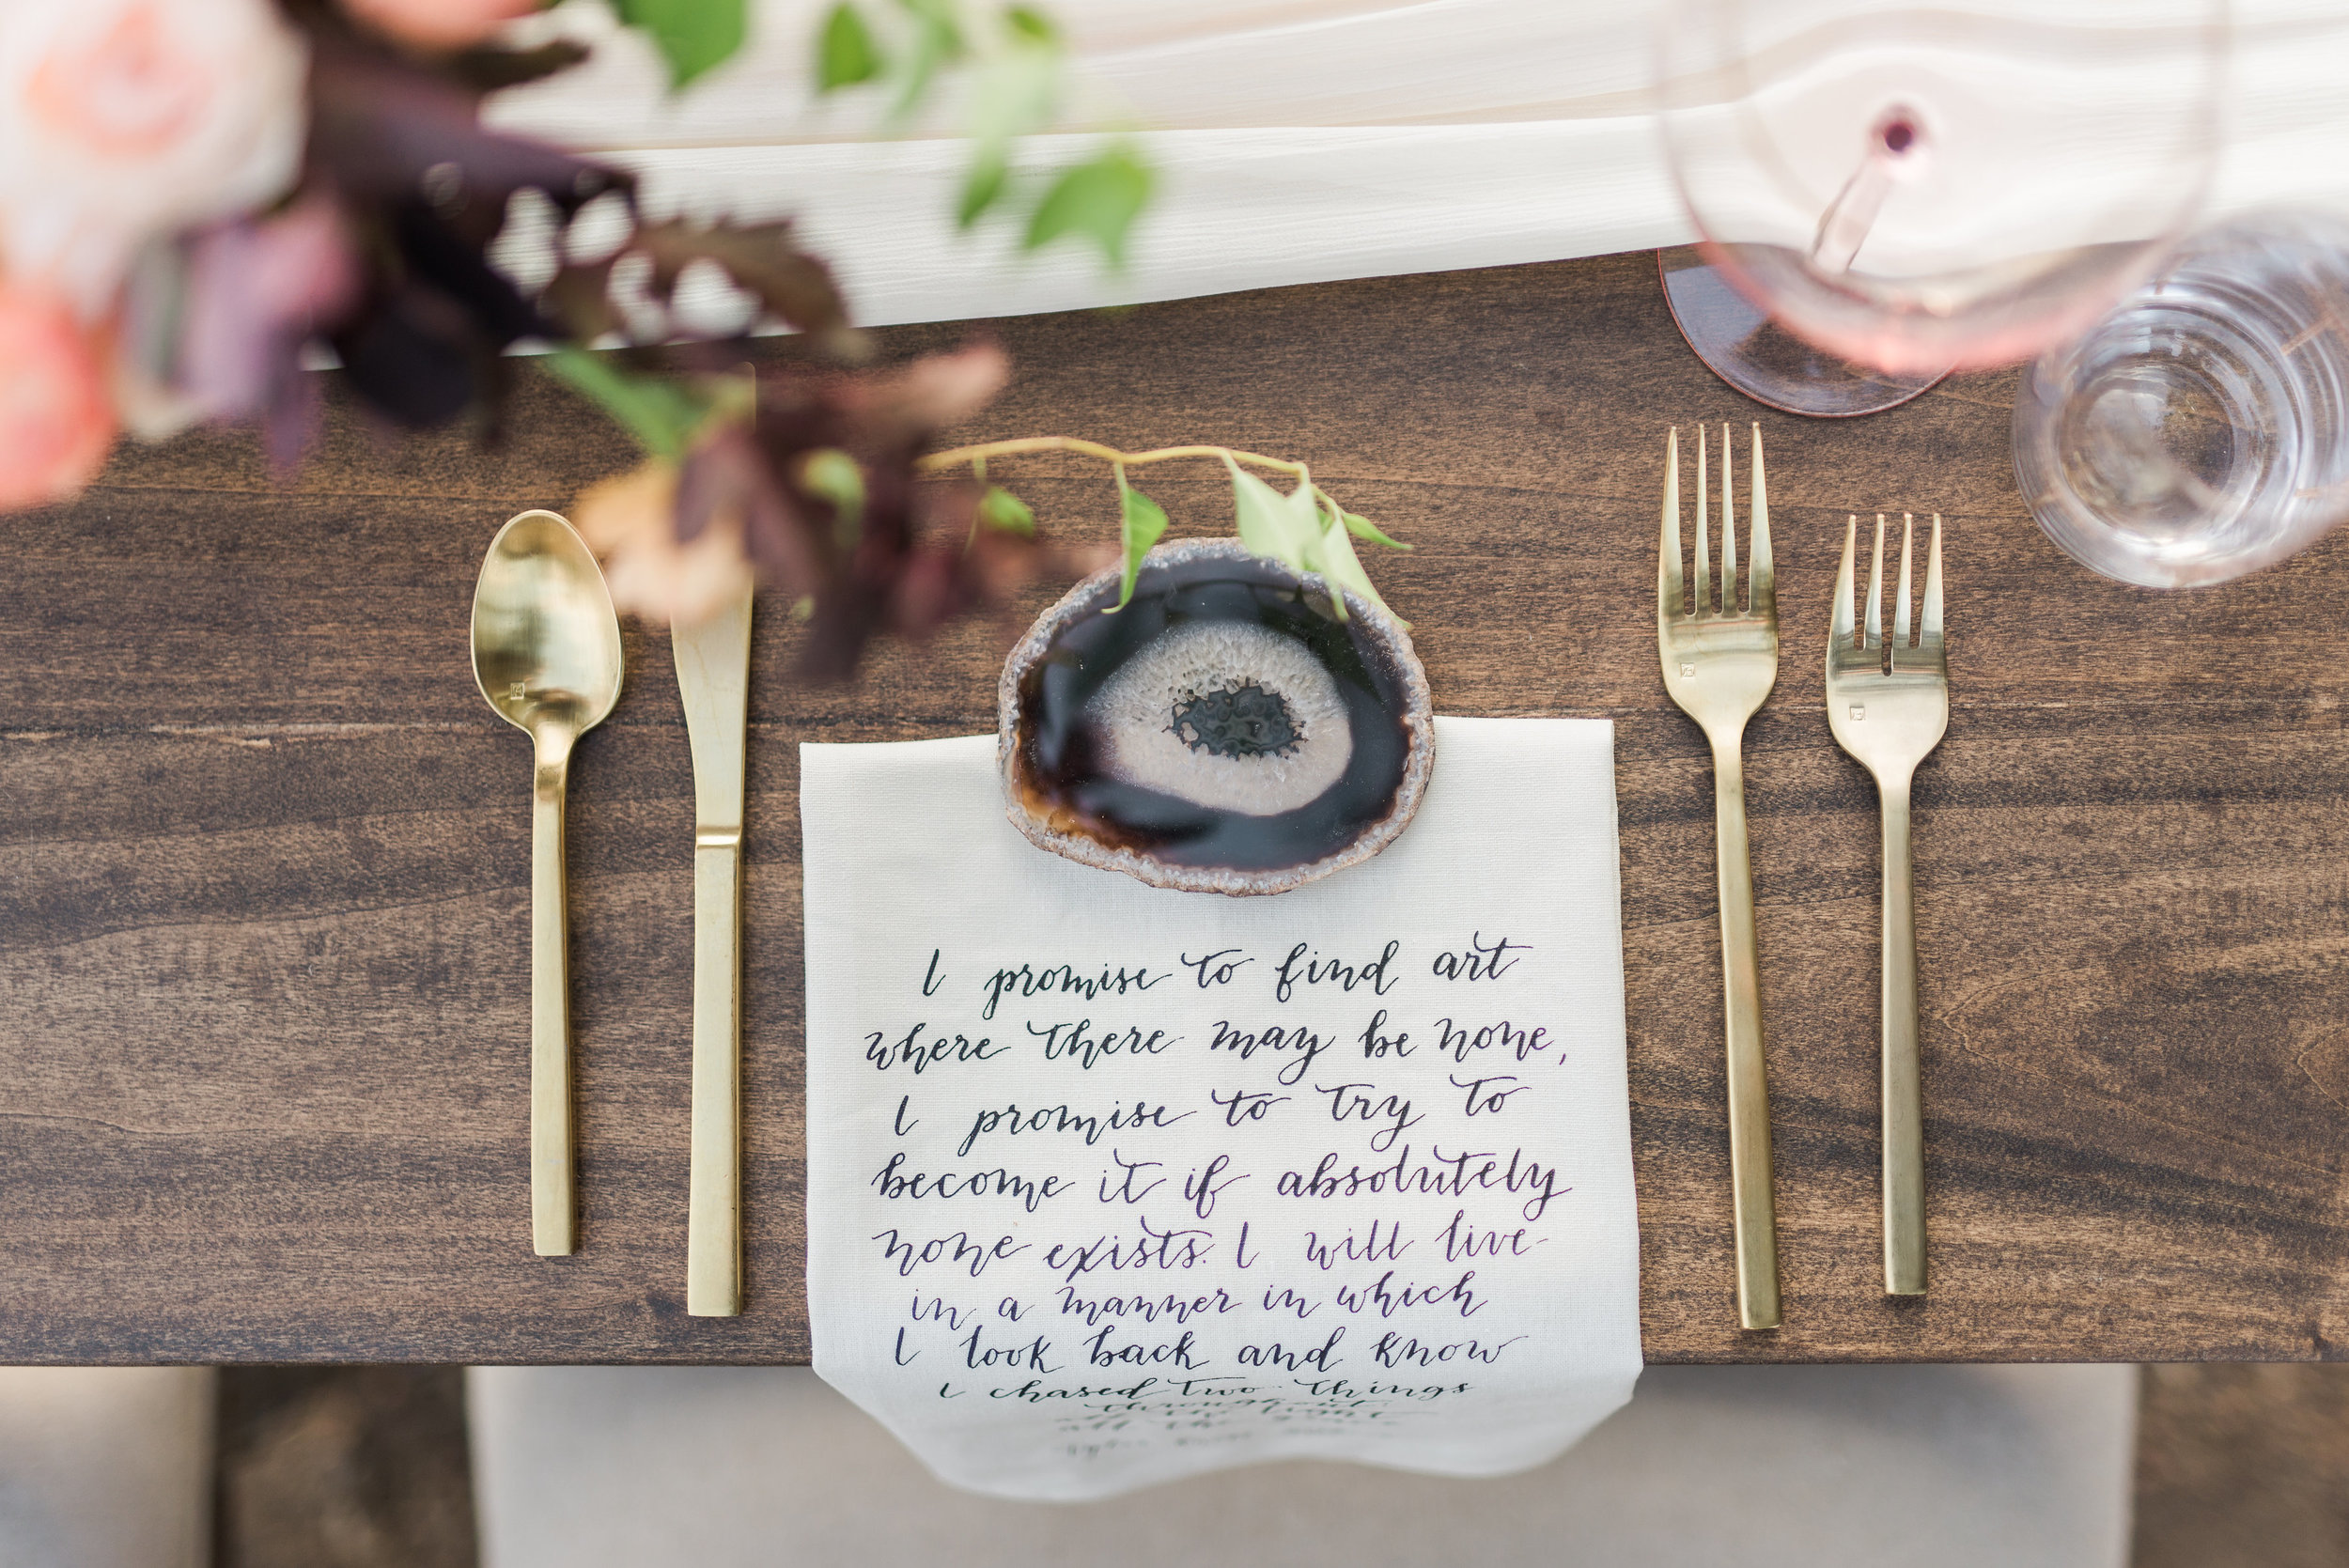 I promise to find art
where there may be none,
I promise to try to
become it if absolutely
none exists. I will live
in a manner in which
I look back and know
I chased two things
throughout
all the light